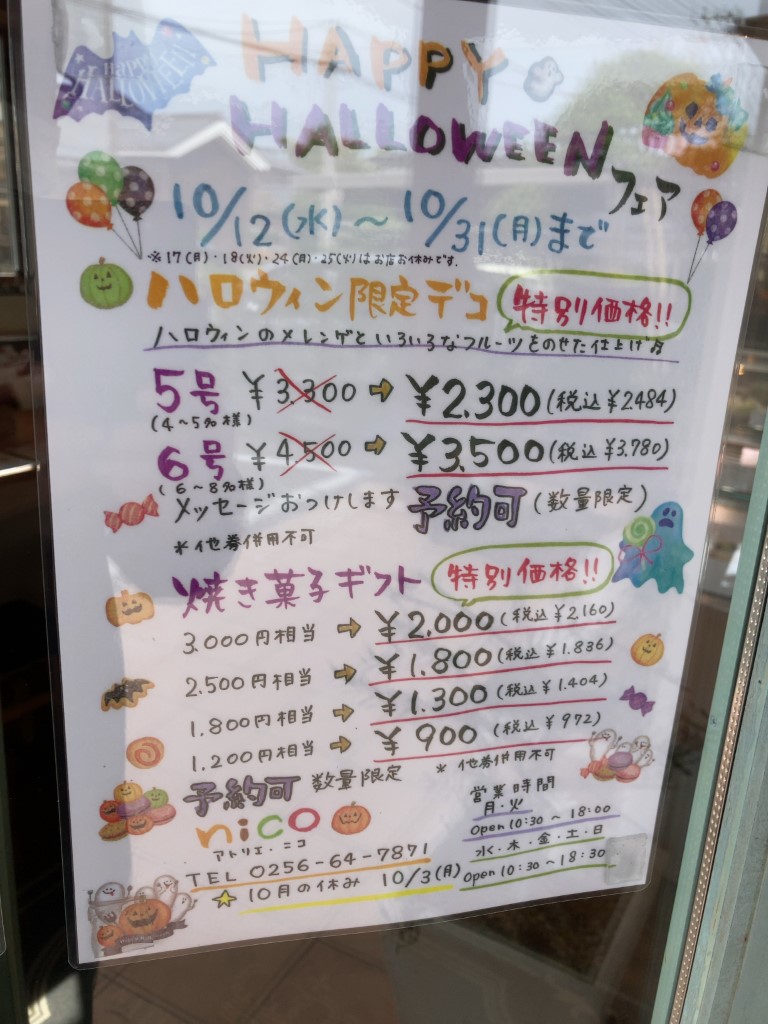 HAPPY HALLOWEEN
HAPPY
HALLOWEEN
フェア
10/12(水)～10/31(月)まで
※17(月)・18(火)・24(月)・25(火)はお店お休みです.
ハロウィン限定デコ 特別価格!!
ハロウィンのメレンゲといろいろなフルーツをのせた仕上げ方
5号 ¥3.300 → ¥2.300(税込¥2484)
(4～5名様)
6号 ¥4.500 → ¥3.500(税込¥3.780)
(6～8名様)
メッセージおつけします 予約可(数量限定)
*他券併用不可
焼き菓子ギフト 特別価格!!
3.000円相当 → ¥2.000(税込¥2.160)
2.500円相当 → ¥1.800(税込¥1.836)
1.800円相当 → ¥1.300(税込¥1.404)
1.200円相当 → ¥900(税込¥972)
*他券併用不可
予約可 数量限定
nico
アトリエ・ニコ
TEL 0256-64-7871
☆10月の休み 10/3(月)
営業時間
月・火
Open 10:30～18:00
水・木・金・土・日
Open 10:30～18:30